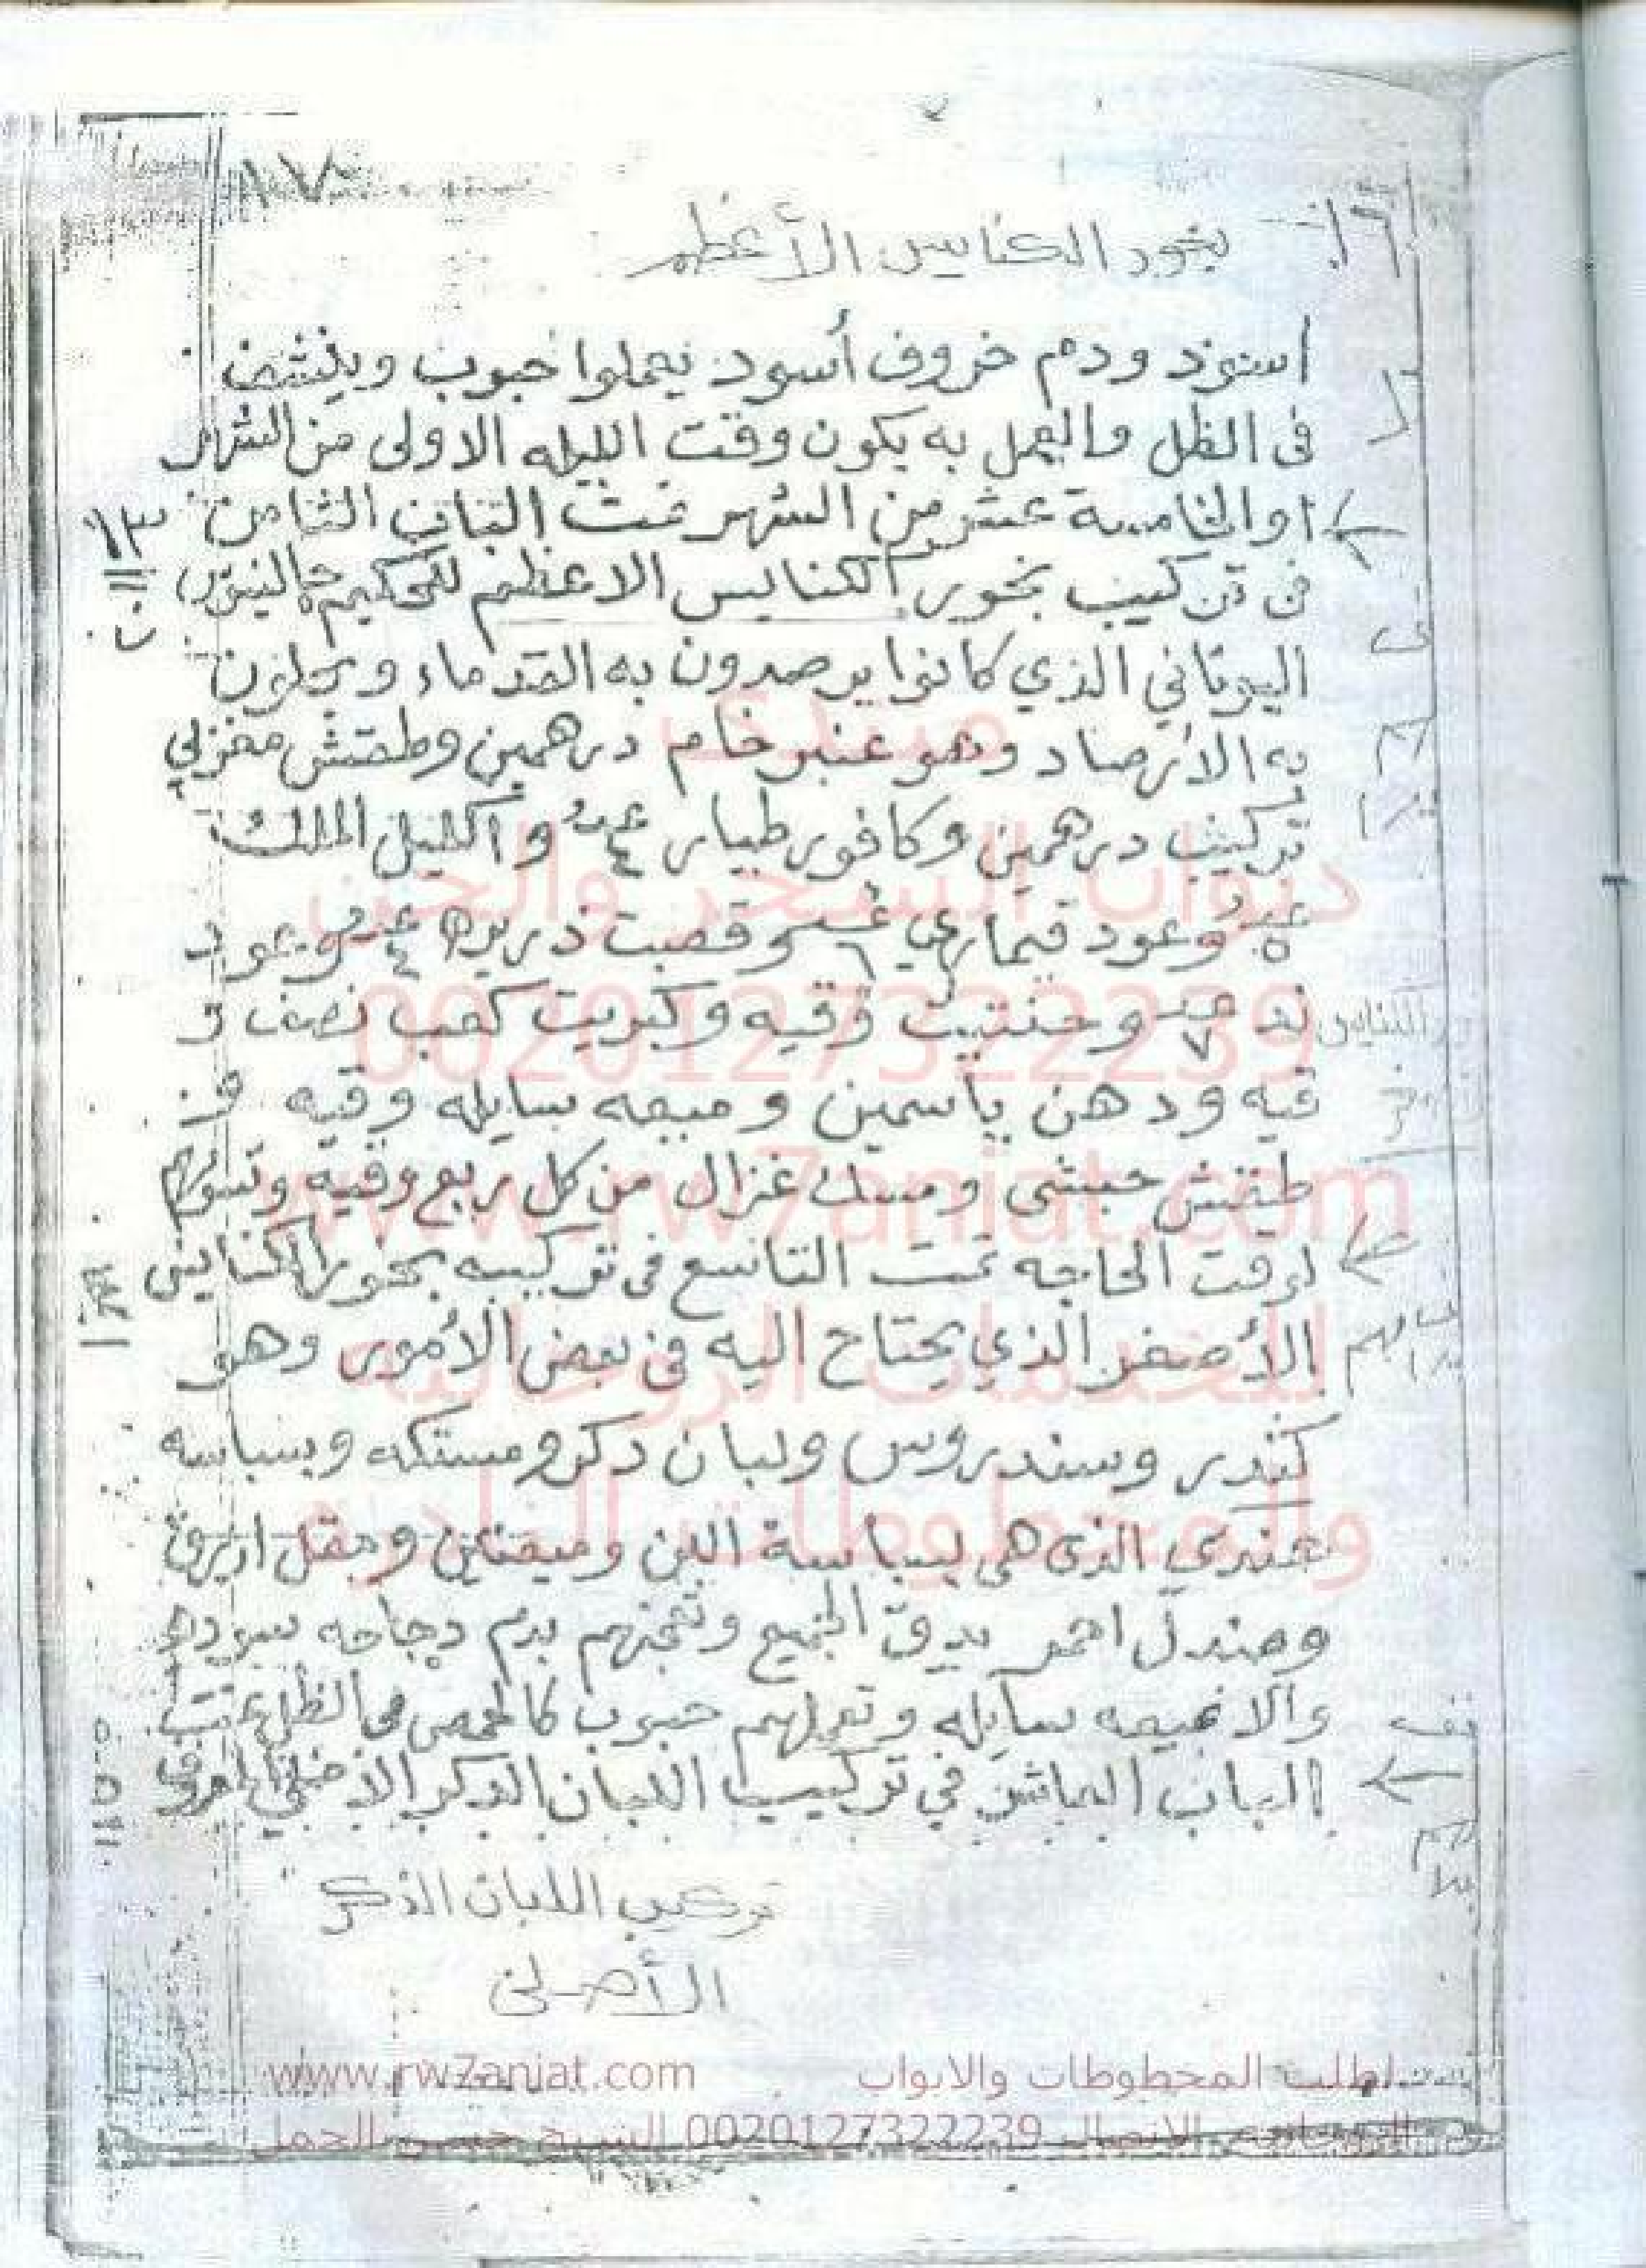 ١٧
١٦
بخور الكنايس الأعظم
اسود ودم خروف أسود يعملوا حبوب وينشف
فى الظل والعمل به يكون وقت الليله الاولى من الشهر
او الخامسة عشر من الشهر تمت الباب الثامن
فى تركيب بخور الكنايس الاعظم للحكيم جالينوس
اليوناني الذي كانوا يرصدون به القدماء ويحلون
به الأرصاد وهو عنبر خام درهمين وطقش مغربي
تركيب درهمين وكافور طيار واكليل الملك
وعود قماري وقصبت ذريره وعود
ند وحنتيت وقيه وكبريت كعب نصف و
قيه ودهن ياسمين وميعه سايله وقيه
طقش حبشى ومسك غزال من كل ربع وقيه وتسولهم
لوقت الحاجه تمت التاسع فى تركيبه بخور الكنايس
الأصغر الذي يحتاج اليه فى بعض الأمور وهو
كندر وسندروس ولبان دكر ومستكه وبسباسه
هندى الذى هى بسباسة اللبن وميعتين ومقل ازرق
وصندل احمر يدق الجميع وتعجنهم بدم دجاجه سوده
والا ميعه سايله وتعملهم حبوب كالحمص فى الظل تمت
الباب العاشر في تركيب اللبان الدكر
تركيب اللبان الذكر
الأصلى
ميندى
ديوان السحر والجن
0020127322239
www.rw7aniat.com
للخدمات الروحانيه
والمخطوطات النادرة
www.rw7aniat.com لطلب المخطوطات والابواب
الاتصال 0020127322239 الشيخ